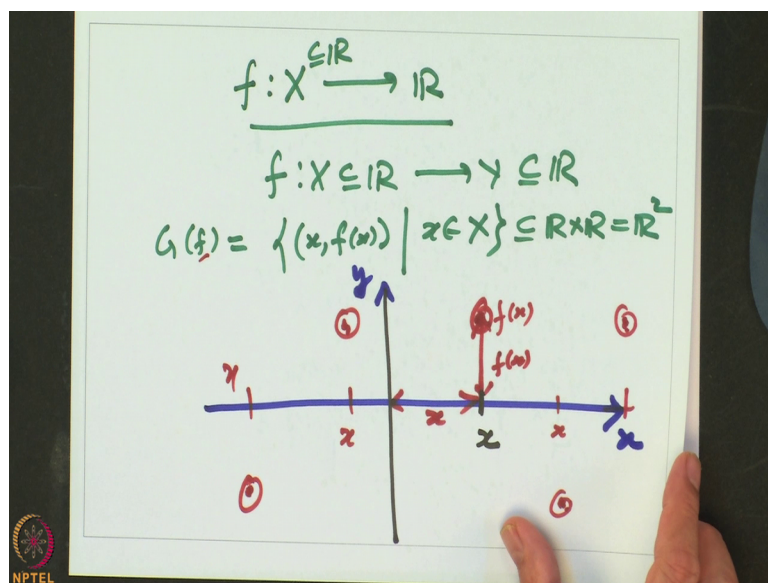 f : X ⊆ ℝ ⟶ ℝ
f : X ⊆ ℝ ⟶ Y ⊆ ℝ
G(f) = {(x, f(x)) | x ∈ X} ⊆ ℝ×ℝ = ℝ²
y
f(x)
f(x)
x
x
x
x
x
x
NPTEL